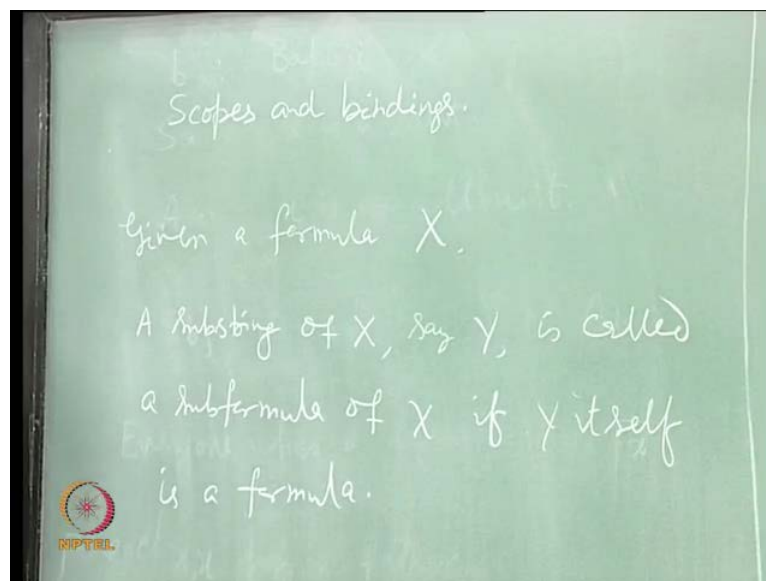 Scopes and bindings.
Given a formula X.
A substring of X, say Y, is called
a subformula of X if Y itself
is a formula.
NPTEL